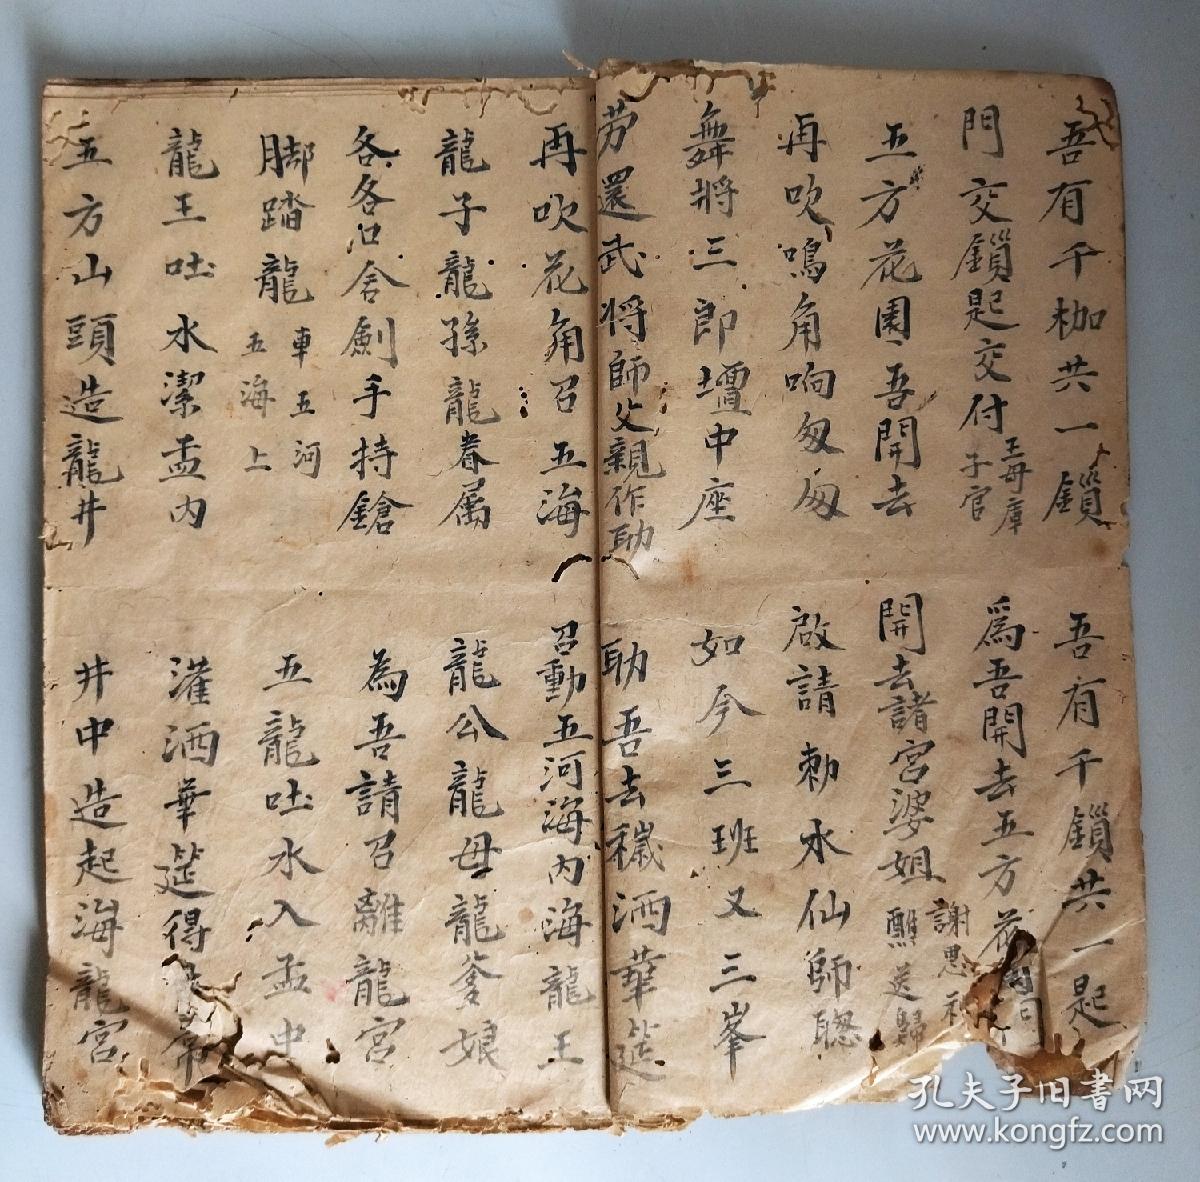 吾有千枷共一鎖　吾有千鎖共一起
門交鎖起交付王母庫子官　爲吾開去五方花
五方花園吾開去　開去諸宮婆姐醮送歸謝恩
再吹鳴角响匆匆　啟請勅水仙師聰
舞將三郎壇中座　如今三班又三峯
劳還武将師父親作助　助吾去穢洒華筵
再吹花角召五海　召動五河海内海龍王
龍子龍孫龍眷属　龍公龍母龍爹娘
各各口含劍手持鎗　為吾請召離龍宮
脚踏龍車五河五海上　五龍吐水入盂中
龍王吐水潔盂内　灌洒華筵得
五方山頭造龍井　井中造起海龍宮
孔夫子旧书网
www.kongfz.com